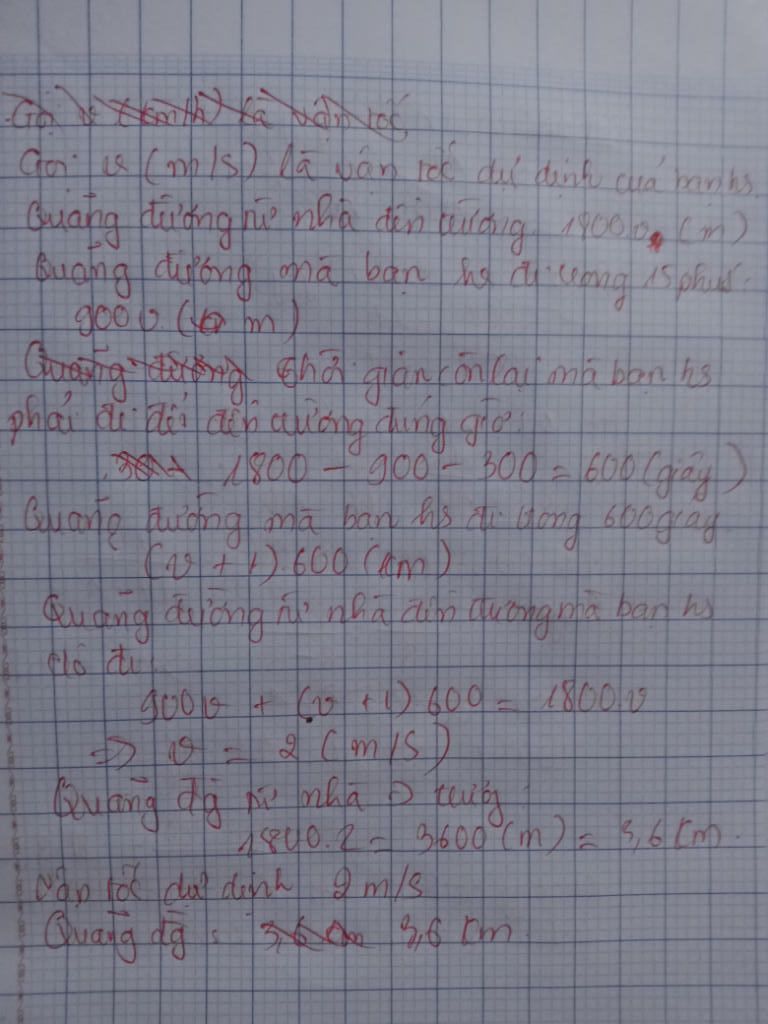 Gọi v (km/h) là vận tốc
Gọi v (m/s) là vận tốc dự định của bạn hs
Quãng đường từ nhà đến trường 1800v (m)
Quãng đường mà bạn hs đi trong 15 phút.
900v. (m)
Quãng đường thời gian còn lại mà bạn hs
phải đi để đến trường đúng giờ:
1800 - 900 - 300 = 600 (giây)
Quãng đường mà bạn hs đi trong 600 giây
(v + 1).600 (m)
Quãng đường từ nhà đến trường mà bạn hs
đó đi
900v + (v + 1) 600 = 1800.v
=> v = 2 (m/s)
Quãng đg từ nhà -> trường
1800.2 = 3600 (m) = 3,6 km.
vận tốc dự định 2 m/s
Quãng đg : 3,6 km 3,6 km